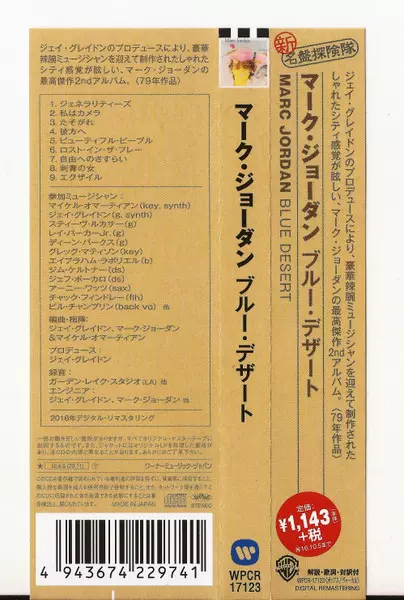 ジェイ・グレイドンのプロデュースにより、豪華
辣腕ミュージシャンを迎えて制作されたしゃれた
シティ感覚が眩しい、マーク・ジョーダンの
最高傑作2ndアルバム。(79年作品)
1. ジェネラリティーズ
2. 私はカメラ
3. たそがれ
4. 彼方へ
5. ビューティフル・ピープル
6. ロスト・イン・ザ・プレー
7. 自由へのさすらい
8. 刺青の女
9. エグザイル
参加ミュージシャン:
マイケル・オマーティアン(key, synth)
ジェイ・グレイドン(g, synth)
スティーヴ・ルカサー(g)
レイ・パーカーJr.(g)
ディーン・パークス(g)
グレッグ・マティソン(key)
エイブラハム・ラボリエル(b)
ジム・ケルトナー(ds)
ジェフ・ポーカロ(ds)
アーニー・ワッツ(sax)
チャック・フィンドレー(flh)
ビル・チャンプリン(back vo) 他
編曲・指揮:
ジェイ・グレイドン、マーク・ジョーダン
&マイケル・オマーティアン
プロデュース:
ジェイ・グレイドン
録音:
ガーデン・レイク・スタジオ(LA) 他
エンジニア:
ジェイ・グレイドン、マーク・ジョーダン 他
2016年デジタル・リマスタリング
ワーナーミュージック・ジャパン
MADE IN JAPAN
STEREO
4 943674 229741
マーク・ジョーダン ブルー・デザート
WPCR
17123
新・名盤探険隊
マーク・ジョーダン ブルー・デザート
MARC JORDAN BLUE DESERT
ジェイ・グレイドンのプロデュースにより、豪華辣腕ミュージシャンを迎えて制作された
しゃれたシティ感覚が眩しい、マーク・ジョーダンの最高傑作2ndアルバム。(79年作品)
定価:
¥1,143(本体)
+税
解説・歌詞・対訳付
DIGITAL REMASTERING